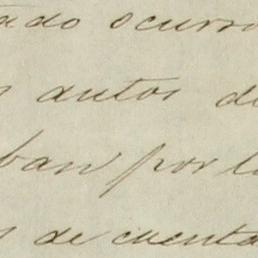 tado ocurro
s autos de
ban por lo
s de cuenta